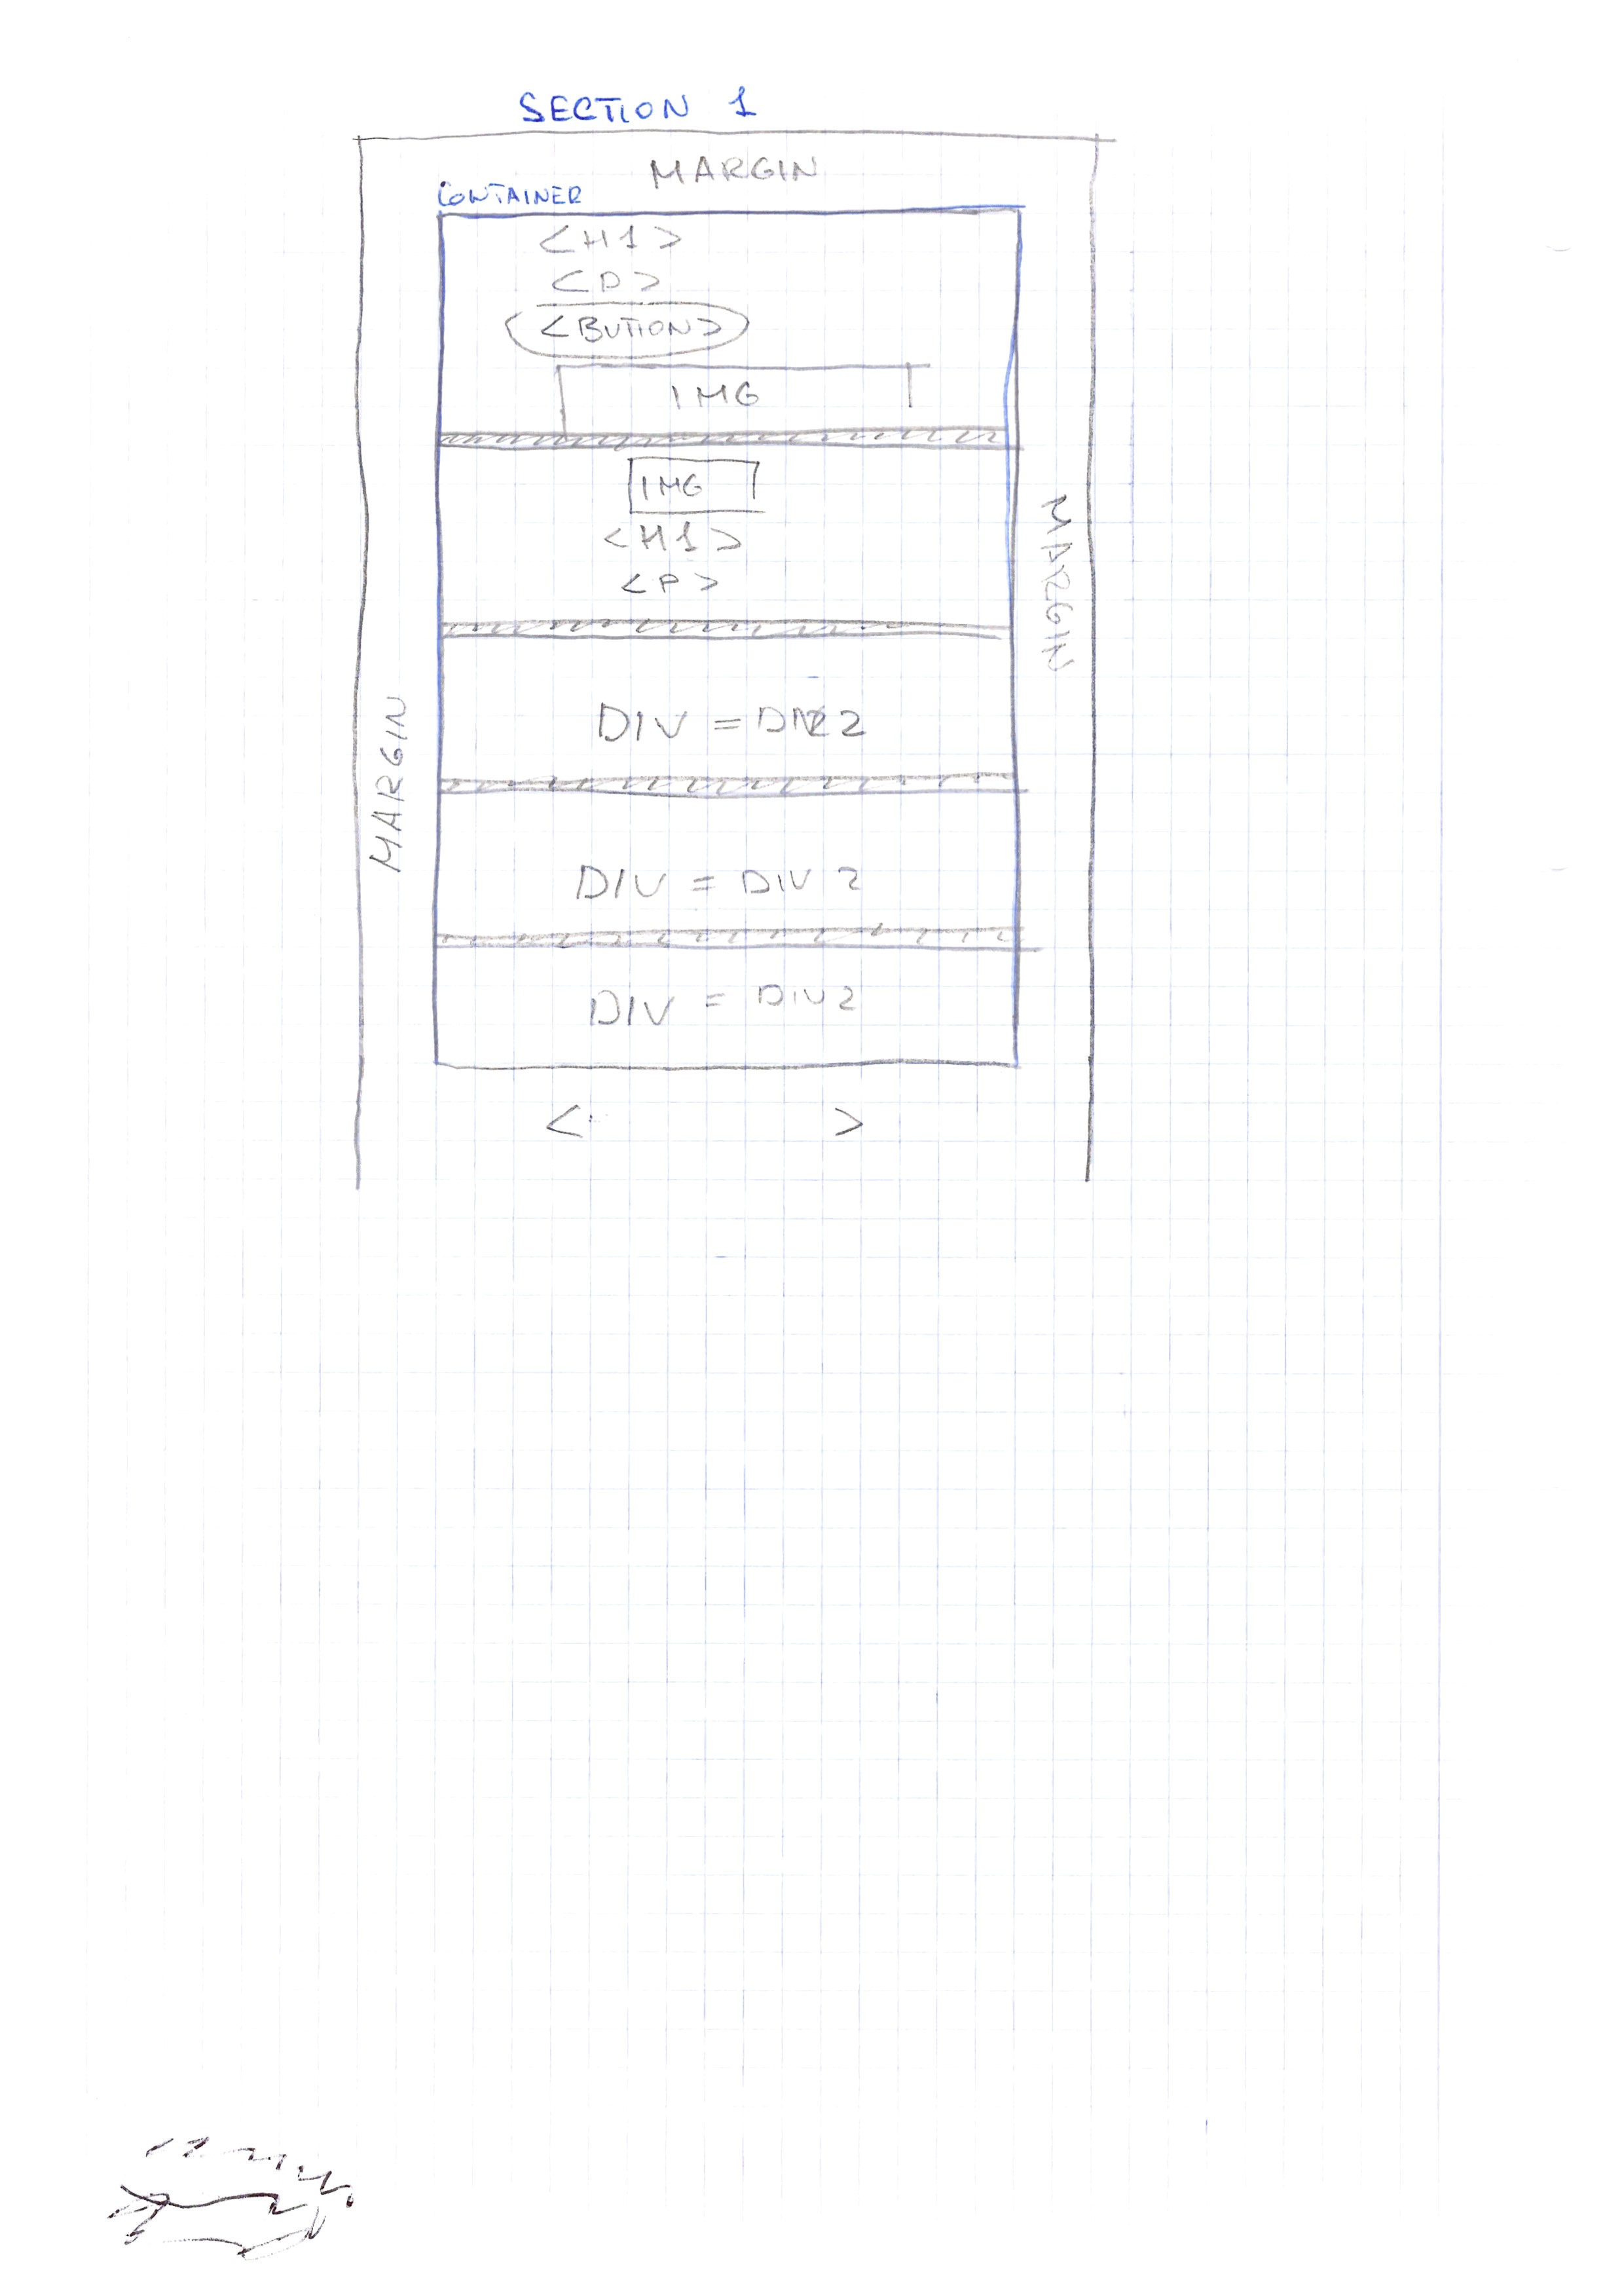 SECTION 1
MARGIN
CONTAINER
<H1>
<P>
<BUTTON>
IMG
IMG
<H1>
<P>
MARGIN
MARGIN
DIV = DIV 2
DIV = DIV 2
DIV = DIV 2
< >